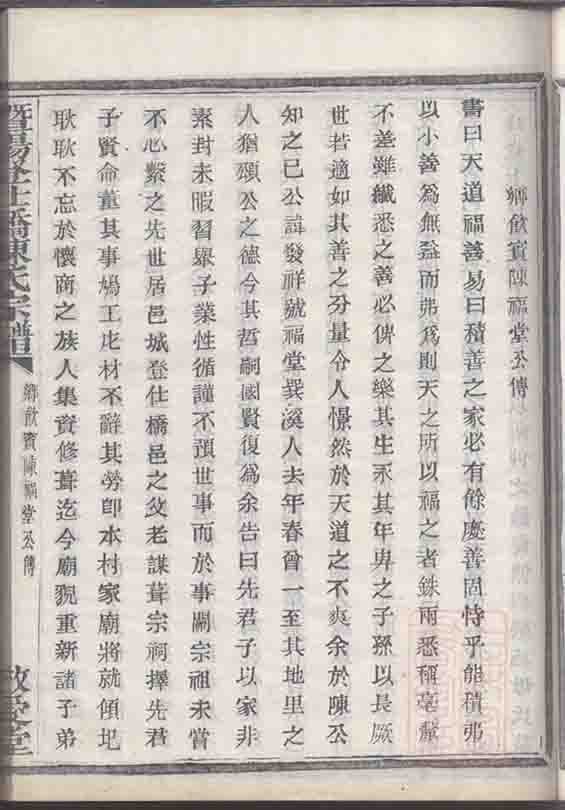 鄉飲賓陳福堂公傳
書曰天道福善易曰積善之家必有餘慶善固恃乎能積弗
以小善為無益而弗為則天之所以福之者銖兩悉稱毫釐
不差雖纖悉之善必俾之樂其生永其年畀之子孫以長厥
世若適如其善之分量令人憬然於天道之不爽余於陳公
知之已公諱發祥號福堂巽溪人去年春曾一至其地里之
人猶頌公之德今其哲嗣國賢復為余告曰先君子以家非
素封未暇習舉子業性循謹不預世事而於事關宗祖未嘗
不心繫之先世居邑城登仕橋邑之父老謀葺宗祠擇先君
子賢命董其事鳩工庀材不辭其勞卽本村家廟將就傾圯
耿耿不忘於懷商之族人集資修葺迄今廟貌重新諸子弟
暨陽登仕橋陳氏宗譜
鄉飲賓陳福堂公傳
敬愛堂